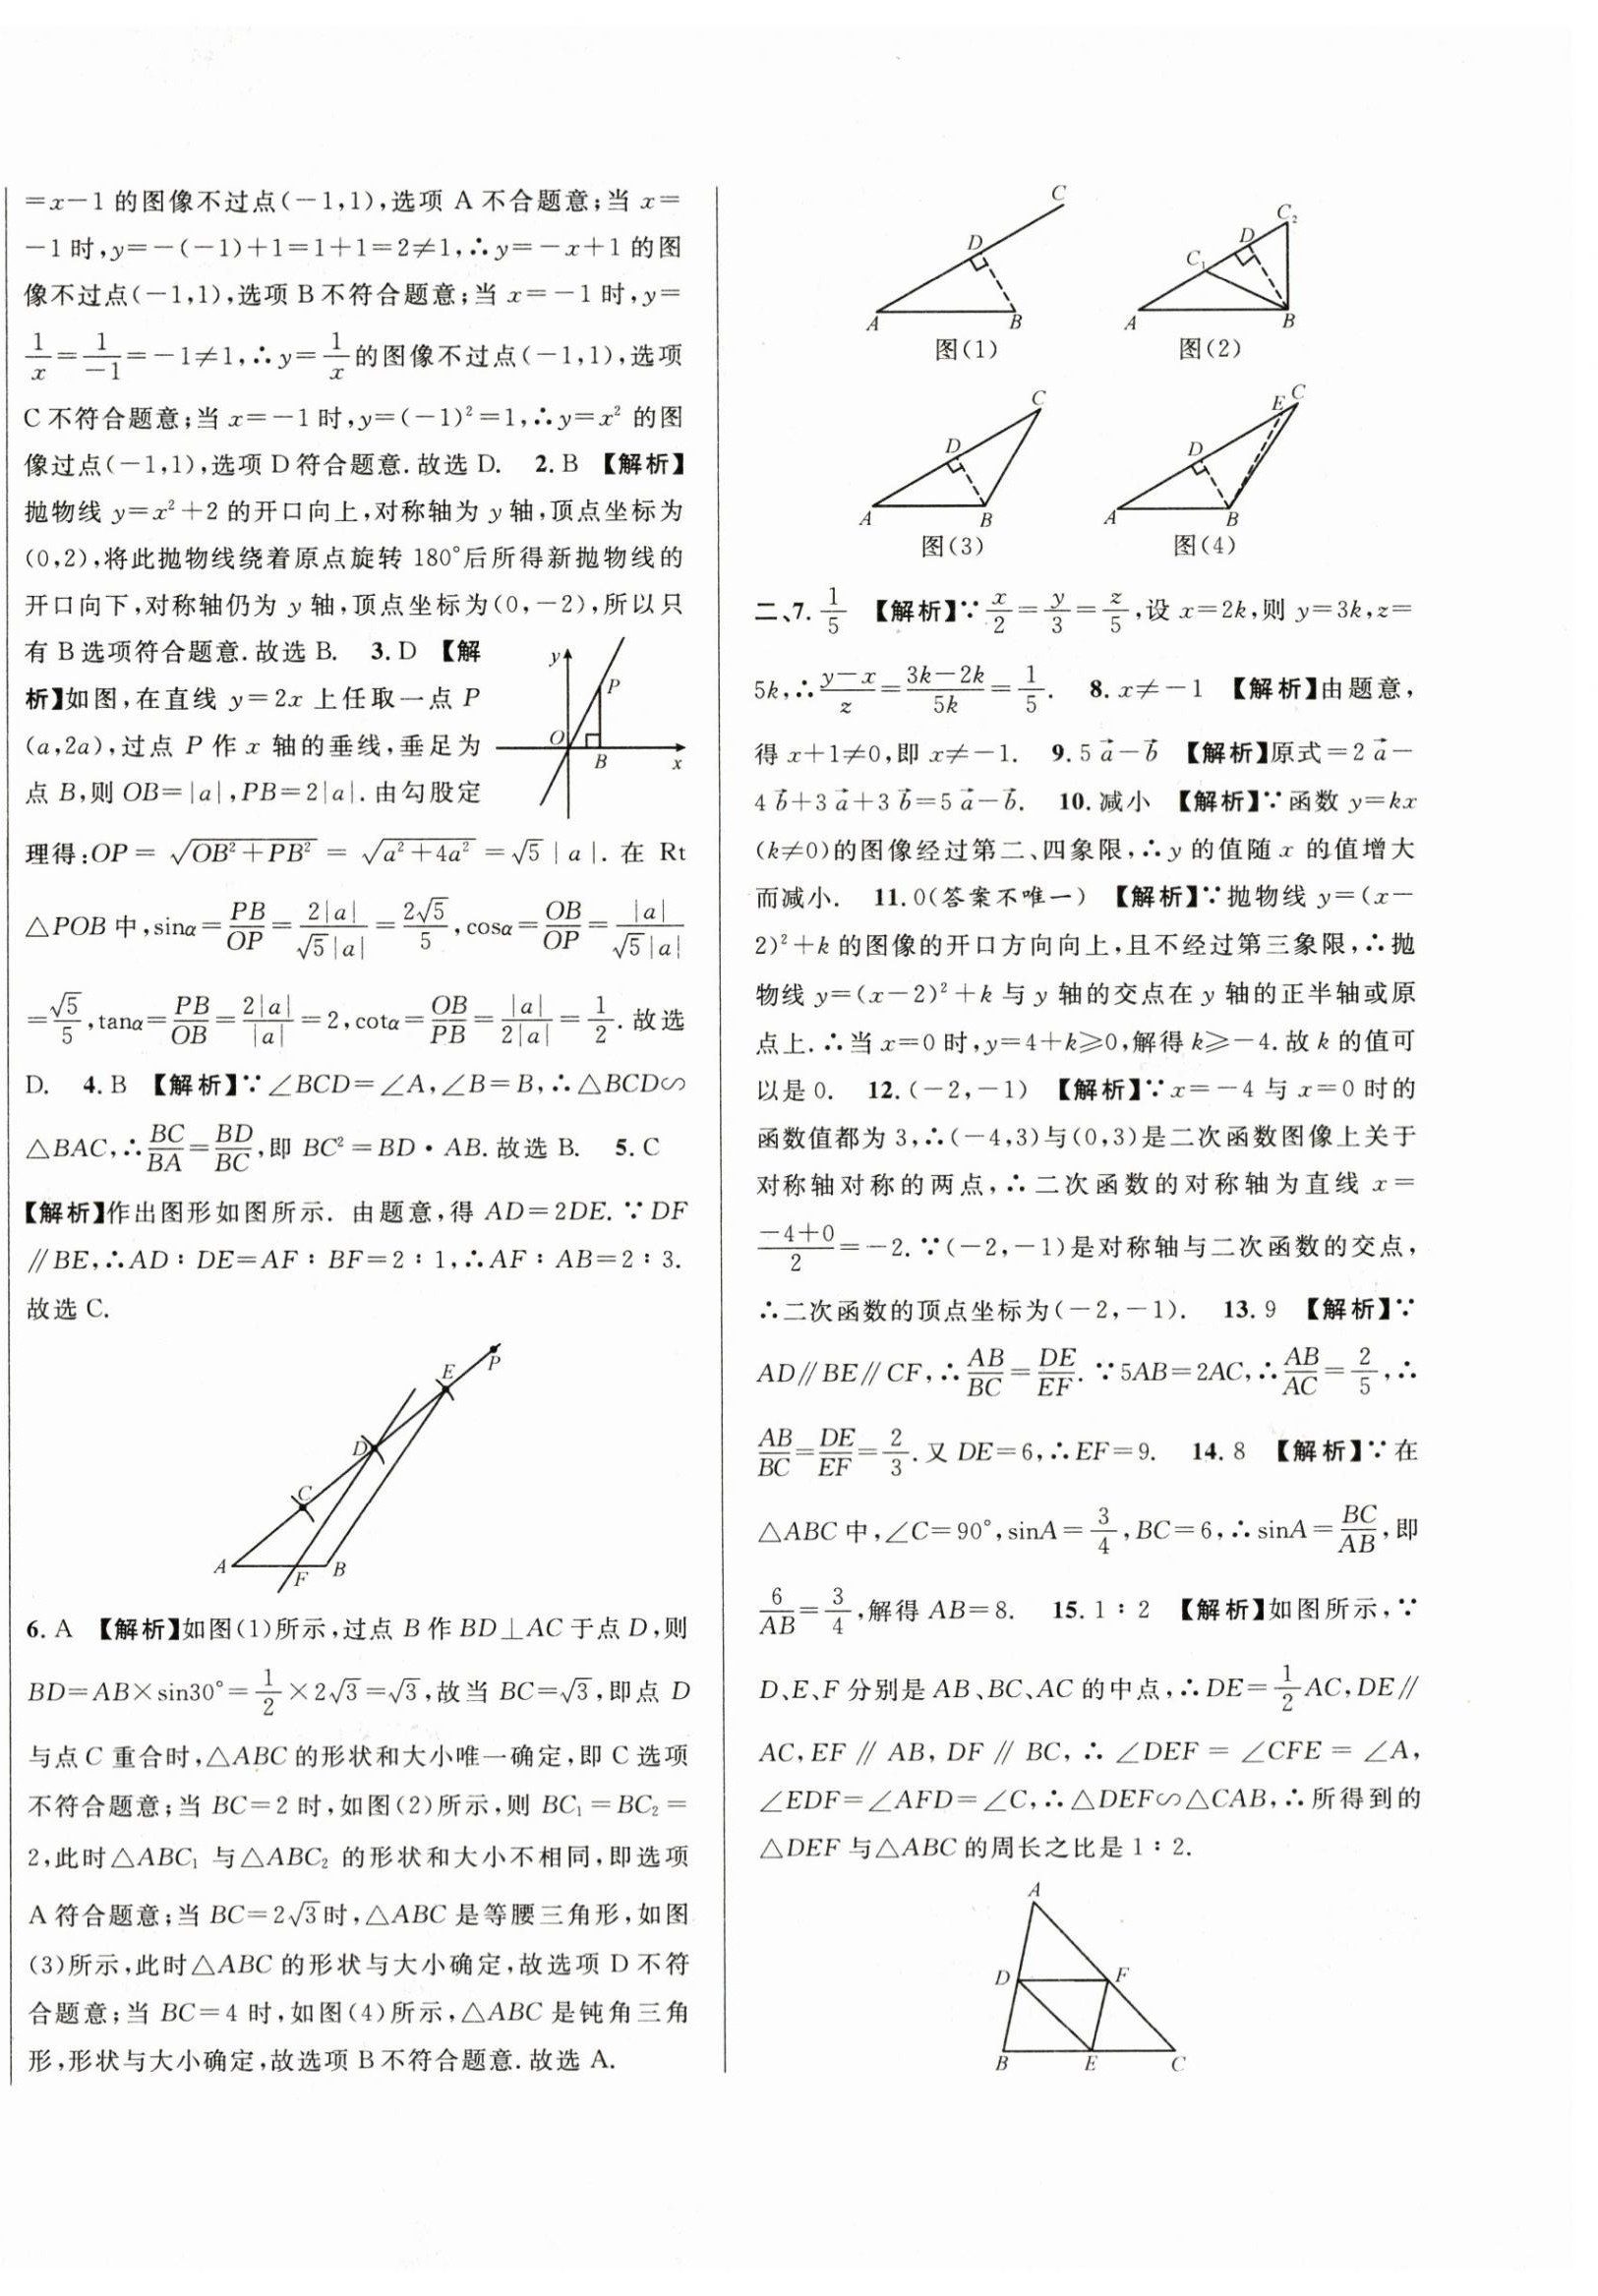 =x-1 的图像不过点(-1,1),选项 A 不合题意;当 x=
-1时,y=-(-1)+1=1+1=2≠1,∴y=-x+1 的图
像不过点(-1,1),选项 B 不符合题意;当 x=-1 时,y=
1/x=1/-1=-1≠1,∴y=1/x的图像不过点(-1,1),选项
C 不符合题意;当 x=-1 时,y=(-1)²=1,∴y=x² 的图
像过点(-1,1),选项 D 符合题意.故选 D. 2. B 【解析】
抛物线 y=x²+2 的开口向上,对称轴为 y 轴,顶点坐标为
(0,2),将此抛物线绕着原点旋转 180°后所得新抛物线的
开口向下,对称轴仍为 y 轴,顶点坐标为(0,-2),所以只
有 B 选项符合题意.故选 B. 3. D 【解
析】如图,在直线 y=2x 上任取一点 P
(a,2a),过点 P 作 x 轴的垂线,垂足为
点 B,则 OB=|a|,PB=2|a|.由勾股定
y P O B x
理得:OP=√(OB²+PB²)=√(a²+4a²)=√5|a|.在 Rt
△POB 中,sinα=PB/OP=2|a|/√5|a|=2√5/5,cosα=OB/OP=|a|/√5|a|
=√5/5,tanα=PB/OB=2|a|/|a|=2,cotα=OB/PB=|a|/2|a|=1/2.故选
D. 4. B 【解析】∵∠BCD=∠A,∠B=B,∴△BCD∽
△BAC,∴BC/BA=BD/BC,即 BC²=BD·AB.故选 B. 5. C
【解析】作出图形如图所示. 由题意,得 AD=2DE.∵DF
∥BE,∴AD:DE=AF:BF=2:1,∴AF:AB=2:3.
故选 C.
A C D E P F B
6. A 【解析】如图(1)所示,过点 B 作 BD⊥AC 于点 D,则
BD=AB×sin30°=1/2×2√3=√3,故当 BC=√3,即点 D
与点 C 重合时,△ABC 的形状和大小唯一确定,即 C 选项
不符合题意;当 BC=2 时,如图(2)所示,则 BC₁=BC₂=
2,此时△ABC₁ 与△ABC₂ 的形状和大小不相同,即选项
A 符合题意;当 BC=2√3时,△ABC 是等腰三角形,如图
(3)所示,此时△ABC 的形状与大小确定,故选项 D 不符
合题意;当 BC=4 时,如图(4)所示,△ABC 是钝角三角
形,形状与大小确定,故选项 B 不符合题意.故选 A.
C D A B
图(1)
C₂ D C₁ A B
图(2)
C D A B
图(3)
E C D A B
图(4)
二、7. 1/5 【解析】∵x/2=y/3=z/5,设 x=2k,则 y=3k,z=
5k,∴(y-x)/z=(3k-2k)/5k=1/5. 8. x≠-1 【解析】由题意,
得 x+1≠0,即 x≠-1. 9. 5a⃗-b⃗ 【解析】原式=2a⃗-
4b⃗+3a⃗+3b⃗=5a⃗-b⃗. 10. 减小 【解析】∵函数 y=kx
(k≠0)的图像经过第二、四象限,∴y 的值随 x 的值增大
而减小. 11. 0(答案不唯一) 【解析】∵抛物线 y=(x-
2)²+k 的图像的开口方向向上,且不经过第三象限,∴抛
物线 y=(x-2)²+k 与 y 轴的交点在 y 轴的正半轴或原
点上.∴当 x=0 时,y=4+k⩾0,解得 k⩾-4.故 k 的值可
以是 0. 12. (-2,-1) 【解析】∵x=-4 与 x=0 时的
函数值都为 3,∴(-4,3)与(0,3)是二次函数图像上关于
对称轴对称的两点,∴二次函数的对称轴为直线 x=
(-4+0)/2=-2.∵(-2,-1)是对称轴与二次函数的交点,
∴二次函数的顶点坐标为(-2,-1). 13. 9 【解析】∵
AD∥BE∥CF,∴AB/BC=DE/EF.∵5AB=2AC,∴AB/AC=2/5,∴
AB/BC=DE/EF=2/3.又 DE=6,∴EF=9. 14. 8 【解析】∵在
△ABC 中,∠C=90°,sinA=3/4,BC=6,∴sinA=BC/AB,即
6/AB=3/4,解得 AB=8. 15. 1:2 【解析】如图所示,∵
D、E、F 分别是 AB、BC、AC 的中点,∴DE=1/2AC,DE∥
AC,EF∥AB,DF∥BC,∴∠DEF=∠CFE=∠A,
∠EDF=∠AFD=∠C,∴△DEF∽△CAB,∴所得到的
△DEF 与△ABC 的周长之比是 1:2.
A D F B E C